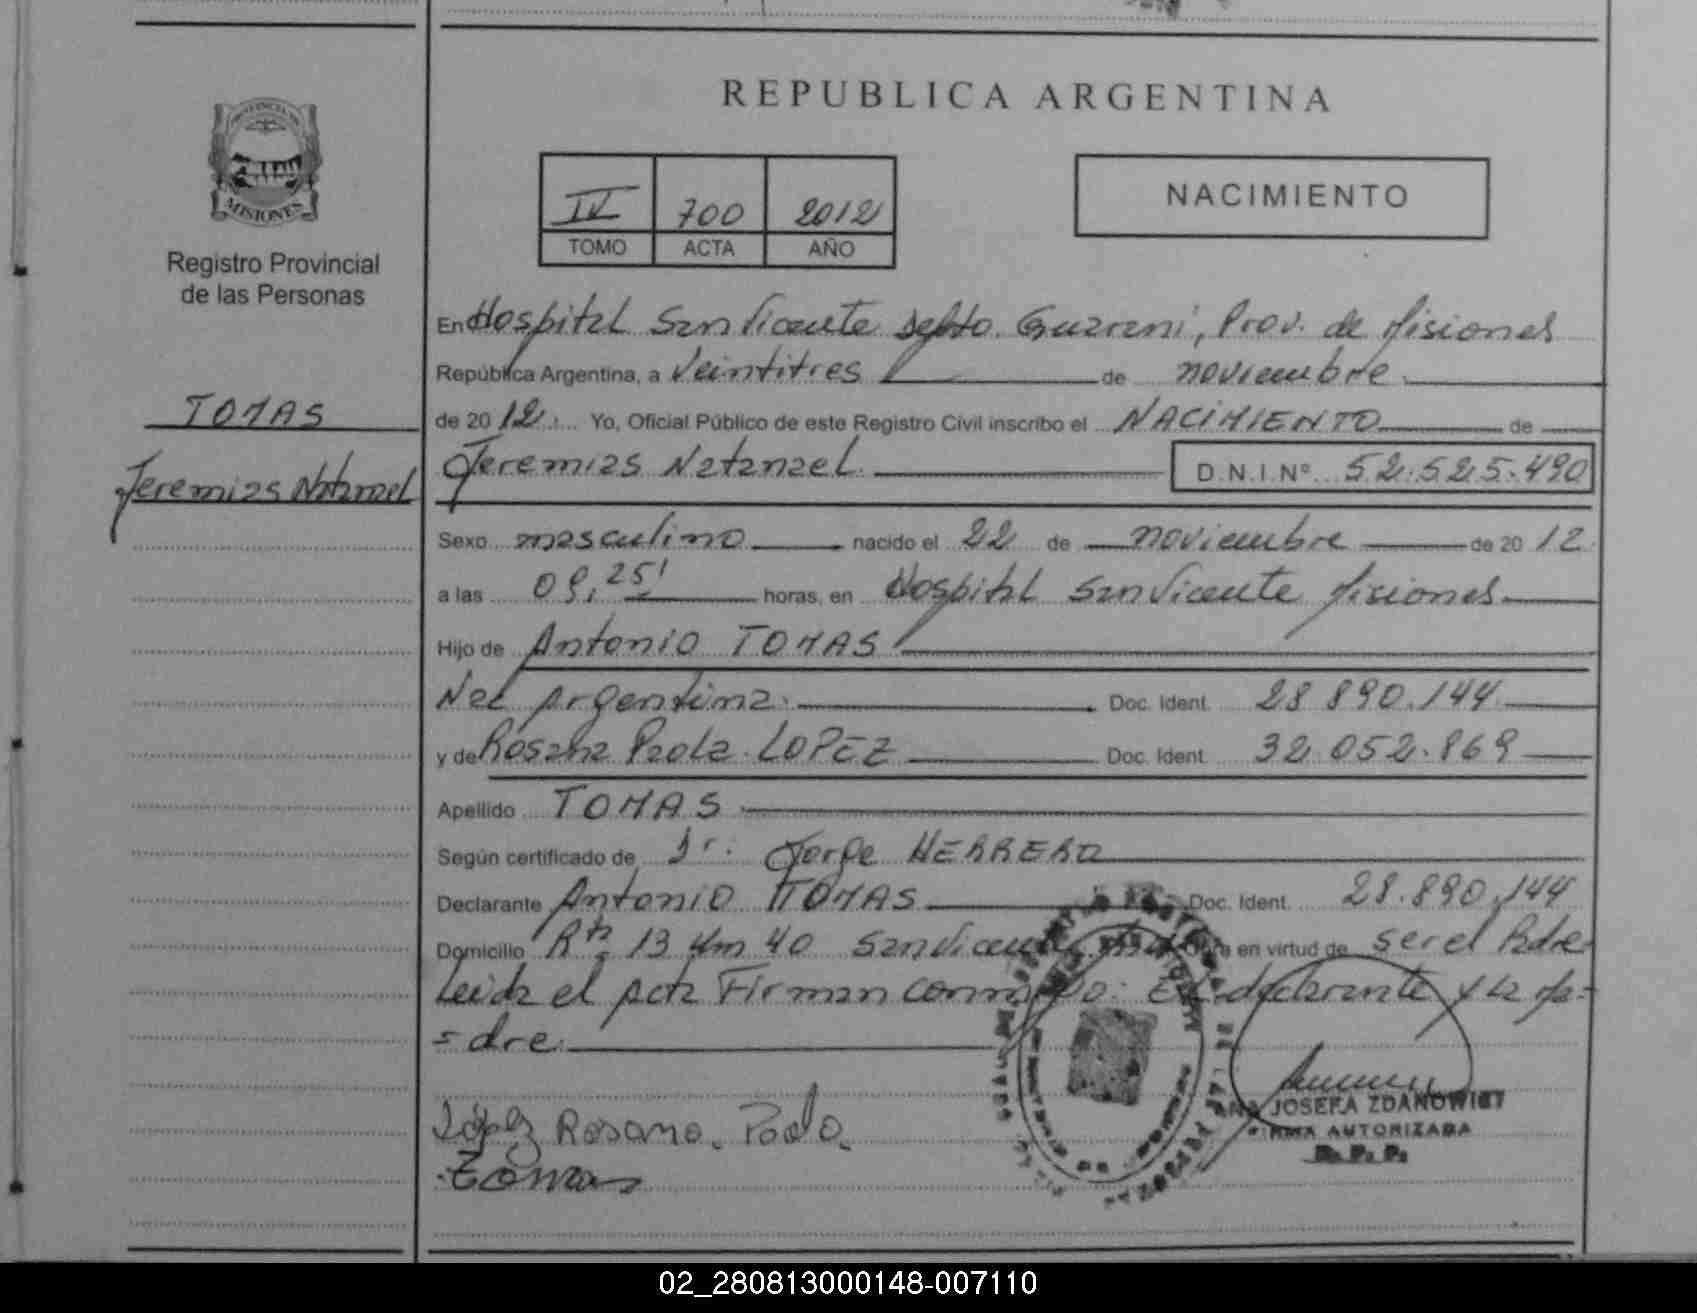 REPUBLICA ARGENTINA
PROVINCIA DE
MISIONES
Registro Provincial
de las Personas
IV 700 2012
TOMO ACTA AÑO
NACIMIENTO
TOMAS
Jeremias Natanael
En Hospital San Vicente depto. Guarani, Prov. de Misiones
República Argentina, a veintitres de noviembre
de 2012. Yo, Oficial Público de este Registro Civil inscribo el NACIMIENTO de
Jeremias Natanael. D.N.I.Nº 52.525.490
Sexo masculino nacido el 22 de noviembre de 2012
a las 09,25' horas, en Hospital San Vicente Misiones
Hijo de Antonio TOMAS
Nac Argentina. Doc. Ident. 28 890.144
y de Rosana Paola LOPEZ Doc. Ident. 32.052.869
Apellido TOMAS
Según certificado de Dr. Jorge HERRERO
Declarante Antonio TOMAS Doc. Ident. 28.890.144
Domicilio Rta 13 km 40 San Vicente en virtud de ser el Padre
Leida el acta Firman conmigo: El declarante y la ma-
-dre.
López Rosana. Paola.
Tomas
ANA JOSEFA ZDANOWICZ
FIRMA AUTORIZADA
R. P. P.
02_280813000148-007110